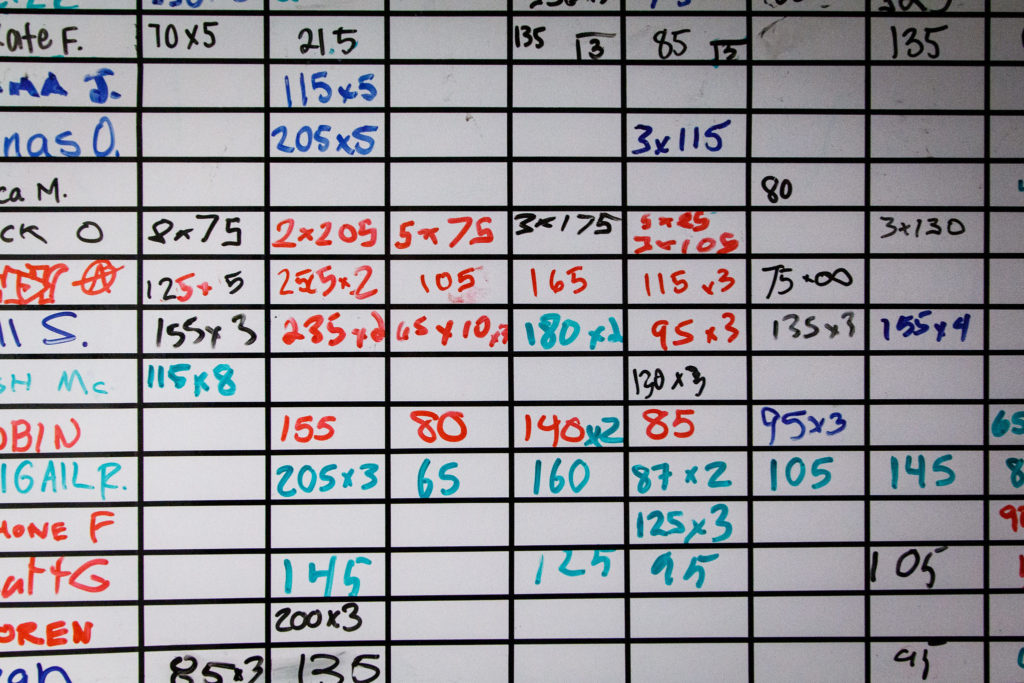 ate F. 70x5 21.5 135 √3 85 √3 135
MA J. 115x5
nas O. 205x5 3x115
ca M. 80
CK O 8x75 2x205 5x75 3x175 5x85 3x130
3x105
125x5 255x2 105 165 115 x3 75x00
ll S. 155x3 235x2 65x10 x3 180x2 95x3 135x3 155x4
SH Mc 115x8 130x3
OBIN 155 80 140x2 85 95x3 65
IGAIL R. 205x3 65 160 87x2 105 145 8
MONE F 125x3 9
attG 145 125 95 105
OREN 200x3
an 85x3 135 95